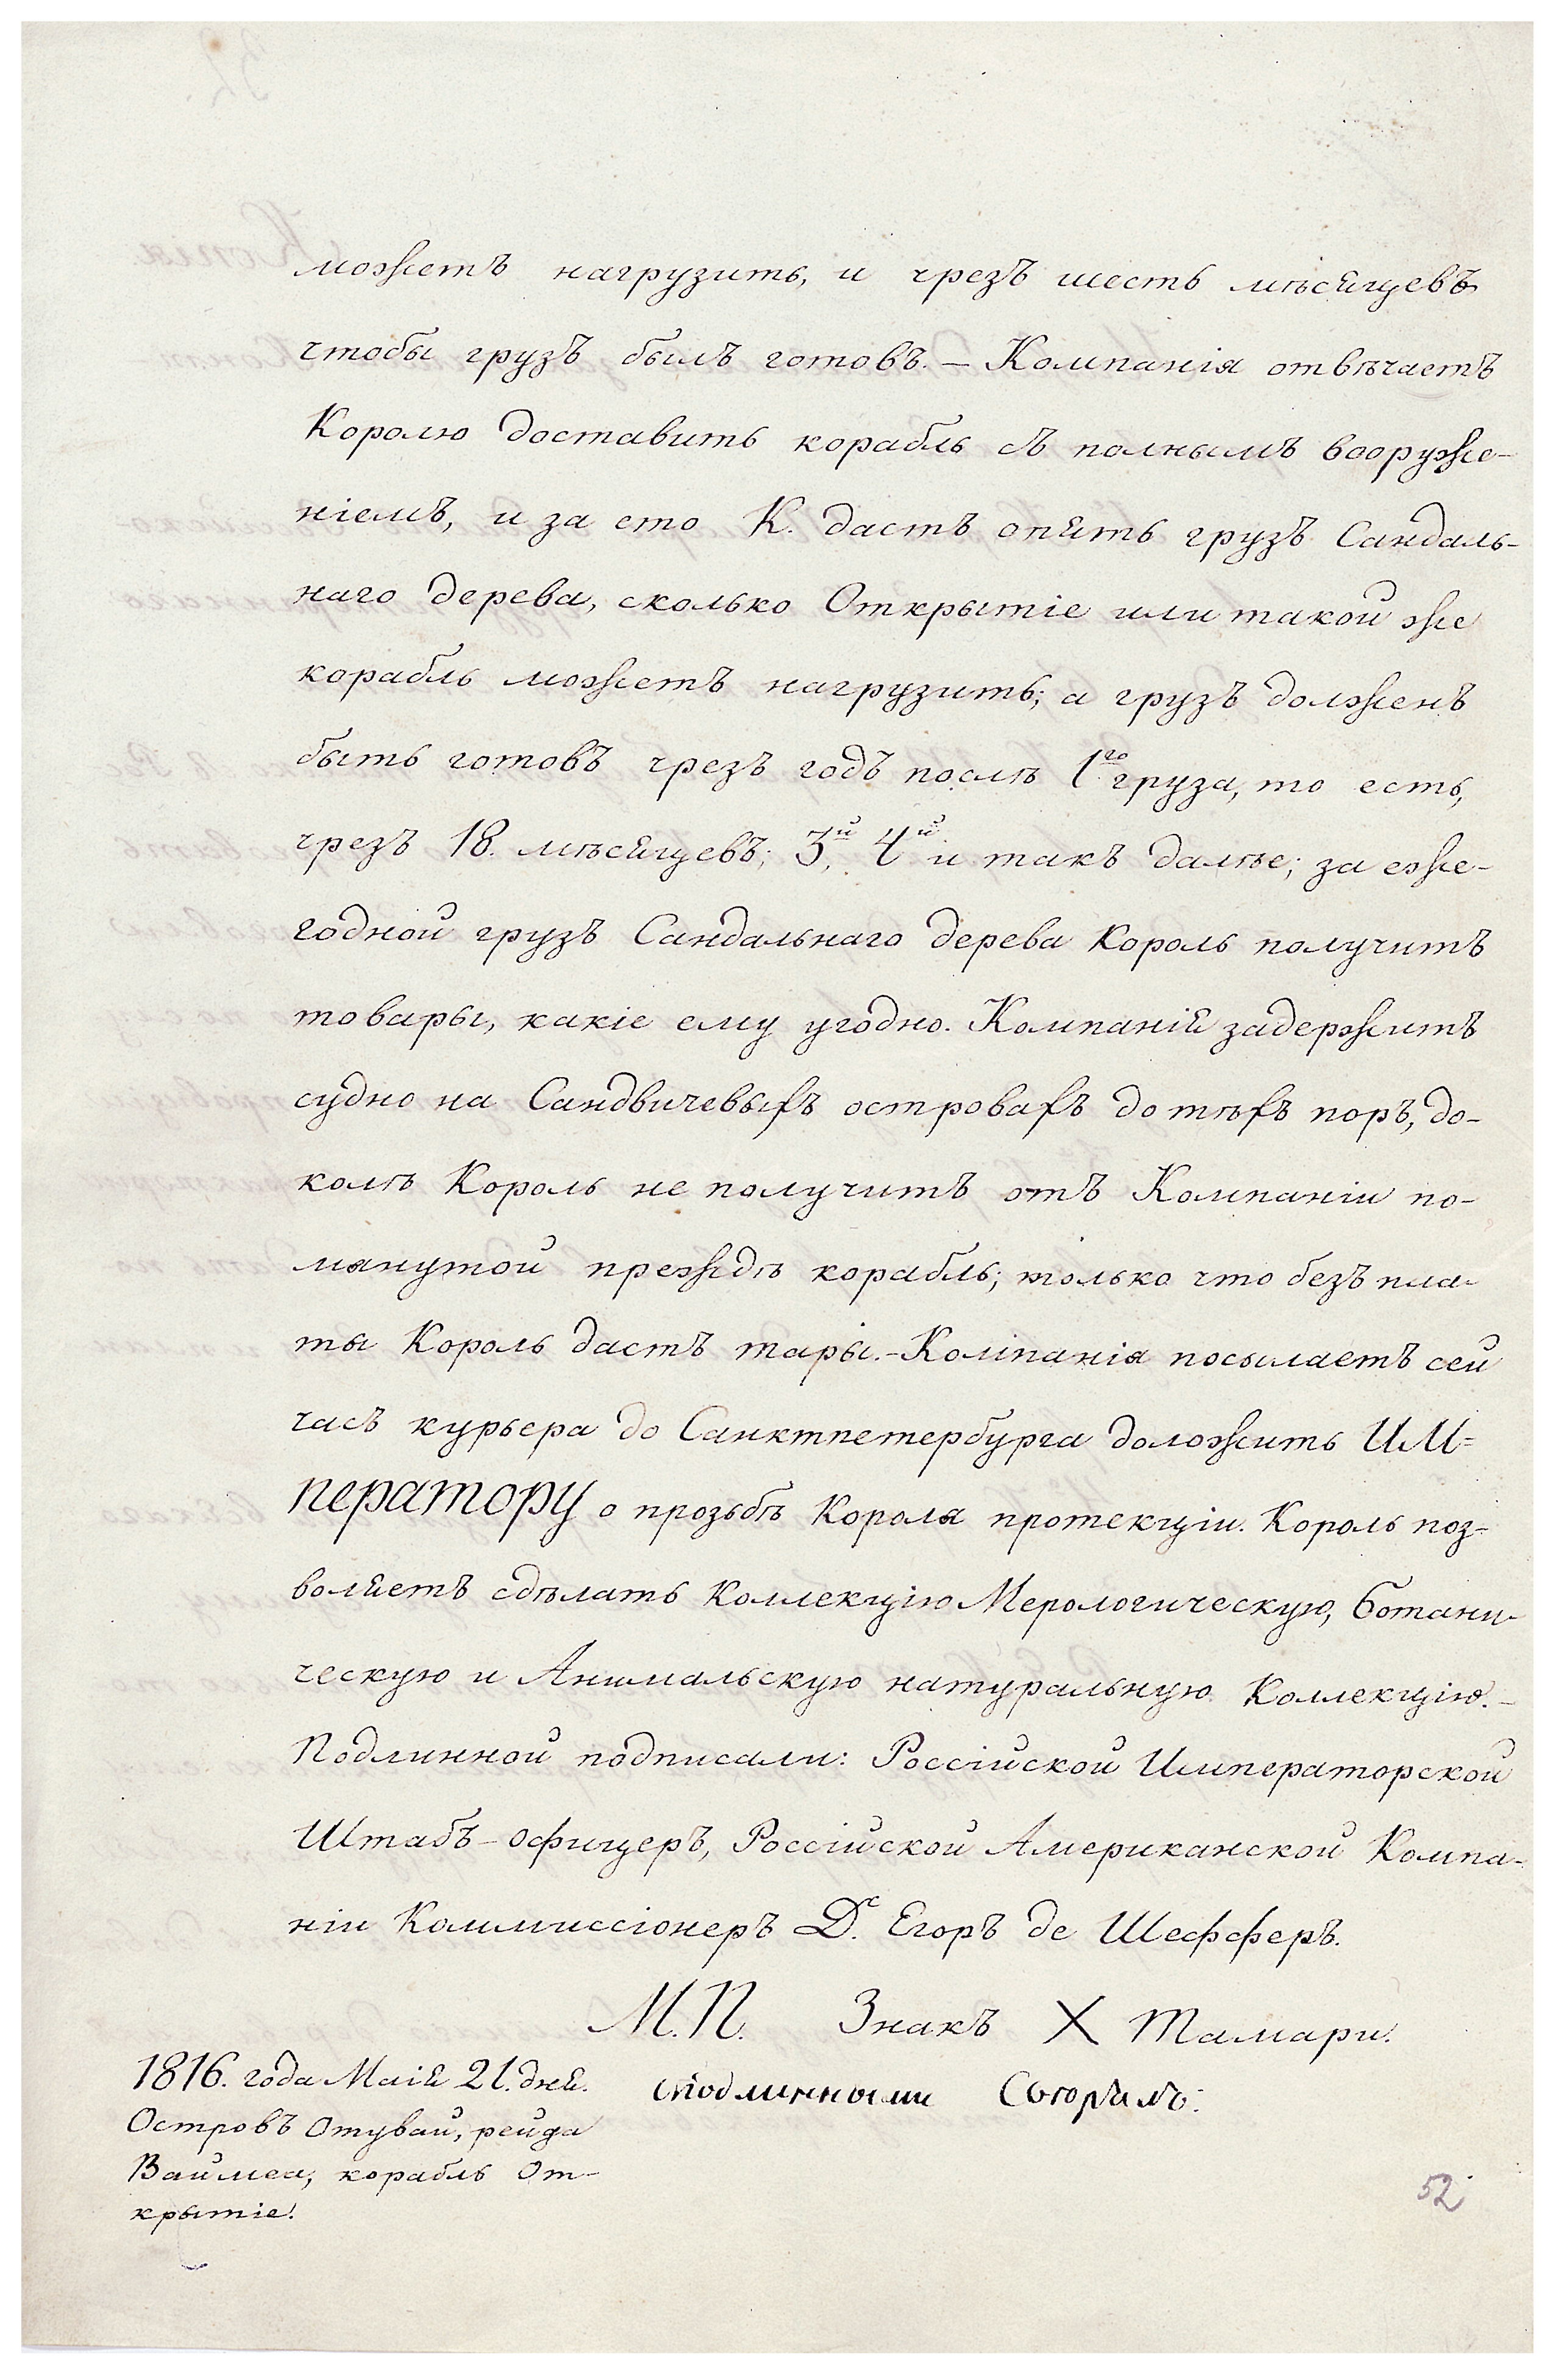 можетъ нагрузить, и чрезъ шесть мѣсяцевъ
чтобы грузъ былъ готовъ. — Компанія отвѣчаетъ
Королю доставить корабль съ полнымъ вооруже-
ніемъ, и за ето К. дастъ опять грузъ Сандаль-
наго дерева, сколько Открытіе или такой же
корабль можетъ нагрузить; а грузъ долженъ
быть готовъ чрезъ годъ послѣ 1го груза, то есть,
чрезъ 18. мѣсяцевъ; 3й, 4й и такъ далѣе; за еже-
годной грузъ Сандальнаго дерева Король получитъ
товары, какіе ему угодно. Компанія задержитъ
судно на Сандвичевыхъ островахъ до тѣхъ поръ, до-
колѣ Король не получитъ отъ Компаніи по-
мянутой прежде корабль; только что безъ пла-
ты Король дастъ тары. - Компанія посылаетъ сей
часъ курьера до Санктпетербурга доложить ИМ=
ператору о прозьбѣ Короля протекціи. Король поз-
воляетъ сдѣлать Коллекцію Мерологическую, ботани-
ческую и Анималькую натуральную Коллекцію. -
Подлинной подписали: Россійской Императорской
Штабъ-офицеръ, Россійской Американской Компа-
ніи Коммиссіонеръ Дс. Егоръ де Шефферъ.
М.П. Знакъ X Тамари.
1816. года Маія 21. дня.
Островъ Отувай, рейда
Ваимеа, корабль От-
крытіе.
с подлинными
52